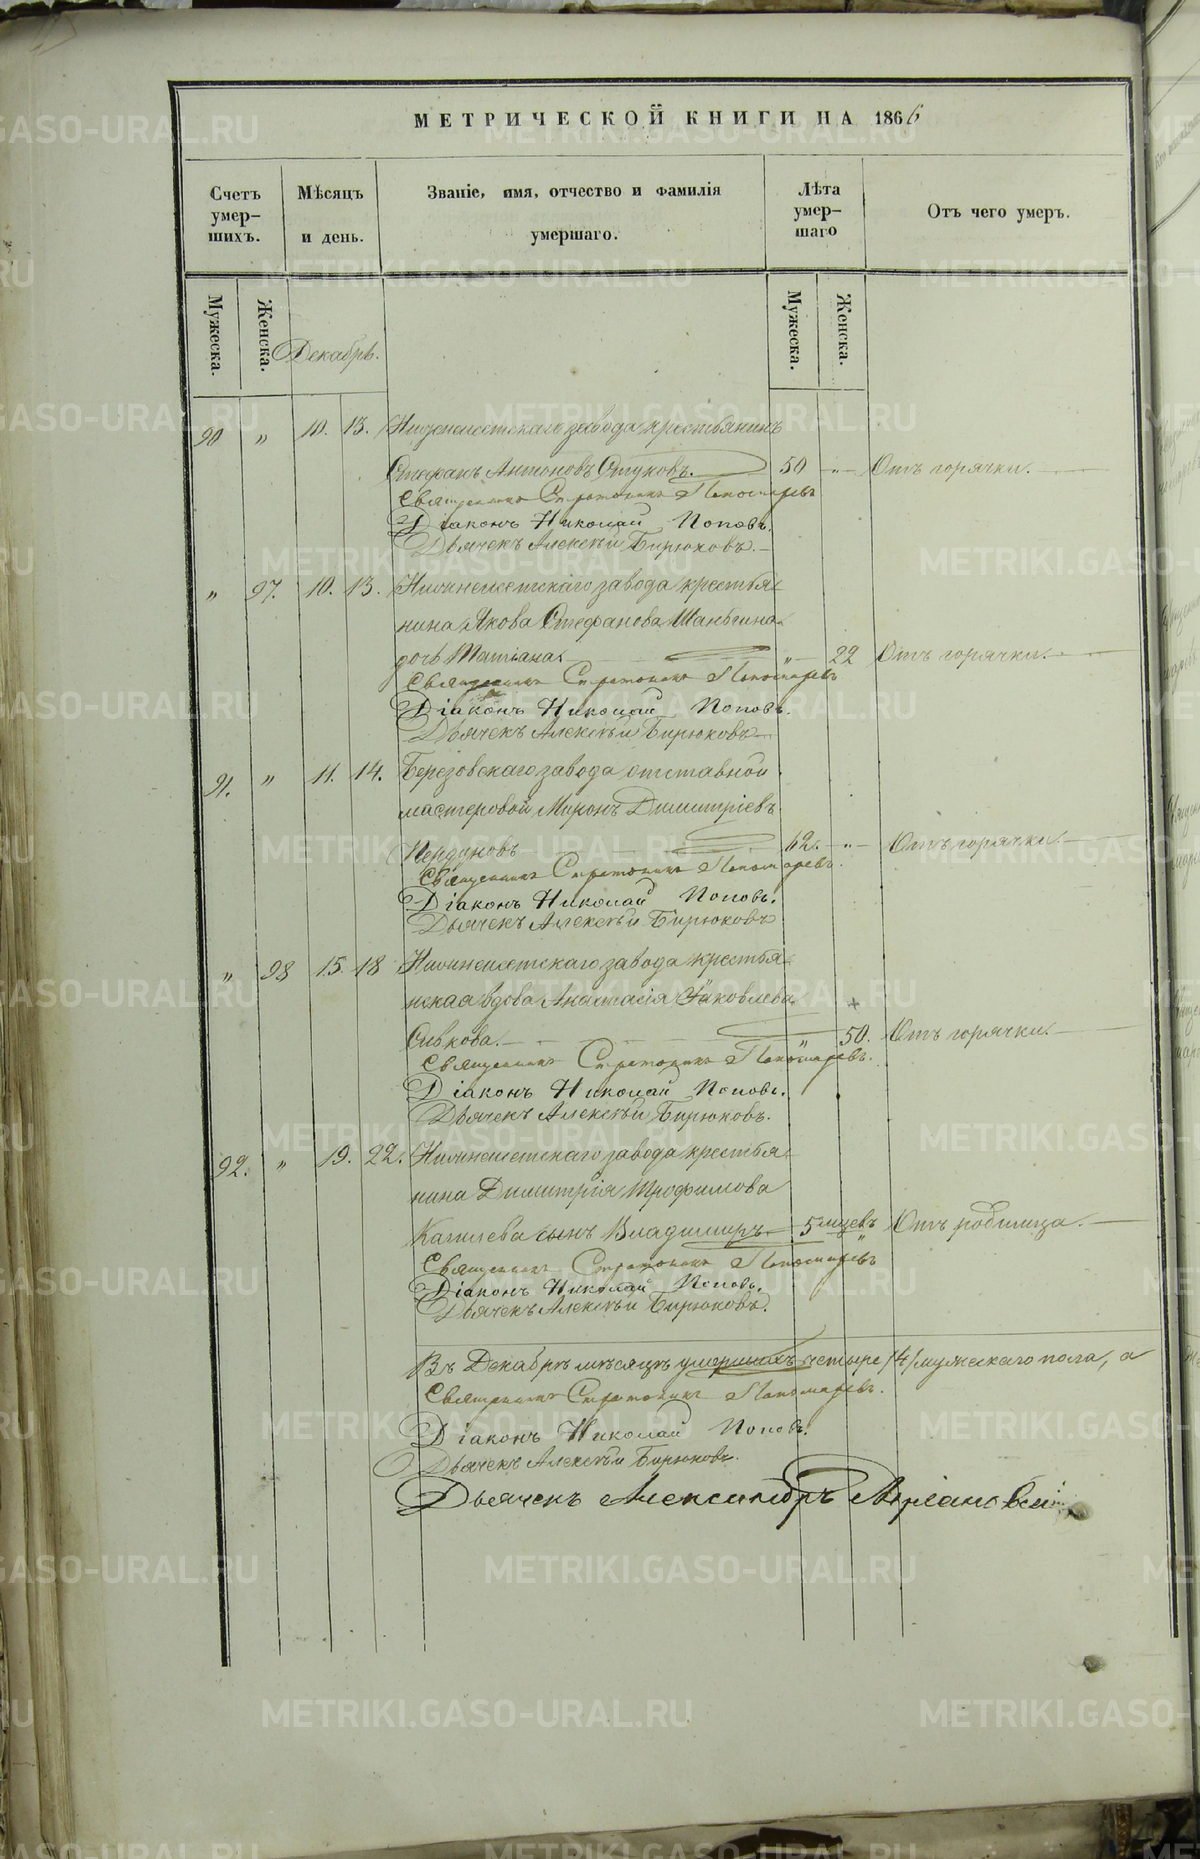 МЕТРИЧЕСКОЙ КНИГИ НА 1866
Счетъ умер-шихъ.
Мѣсяцъ и день.
Званіе, имя, отчество и фамилія умершаго.
Лѣта умер-шаго
Отъ чего умеръ.
Мужеска.
Женска.
Декабрь.
Мужеска.
Женска.
90 " 10. 13. Нижнеисетскаго завода крестьянинъ
Стефанъ Антоновъ 50 " Отъ горячки.
Священникъ Стратоникъ Пономаревъ
Діаконъ Николай Поповъ.
Дьячекъ Алексѣй Бирюковъ.
" 97. 10. 13. Нижнеисетскаго завода крестья-
нина Якова Стефанова Шаньгина
дочь Татіана. " 22 Отъ горячки.
Священникъ Стратоникъ Пономаревъ
Діаконъ Николай Поповъ.
Дьячекъ Алексѣй Бирюковъ
91. " 11. 14. Березовскаго завода отставной
мастеровой Миронъ Димитріевъ
62. " Отъ горячки.
Священникъ Стратоникъ Пономаревъ.
Діаконъ Николай Поповъ.
Дьячекъ Алексѣй Бирюковъ
" 98 15. 18 Нижнеисетскаго завода крестья-
нская вдова Анастасія Яковлева
Сивкова. " 50. Отъ горячки.
Священникъ Стратоникъ Пономаревъ.
Діаконъ Николай Поповъ.
Дьячекъ Алексѣй Бирюковъ.
92. " 19. 22. Нижнеисетскаго завода крестья-
нина Димитрія Трофимова
сынъ Владимиръ 5 мцевъ " Отъ родимца.
Священникъ Стратоникъ Пономаревъ
Діаконъ Николай Поповъ.
Дьячекъ Алексѣй Бирюковъ.
Въ Декабрѣ мѣсяцѣ умершихъ четыре /4/ мужескаго пола, а
Священникъ Стратоникъ Пономаревъ.
Діаконъ Николай Поповъ.
Дьячекъ Алексѣй Бирюковъ.
Дьячекъ Александръ
METRIKI.GASO-URAL.RU